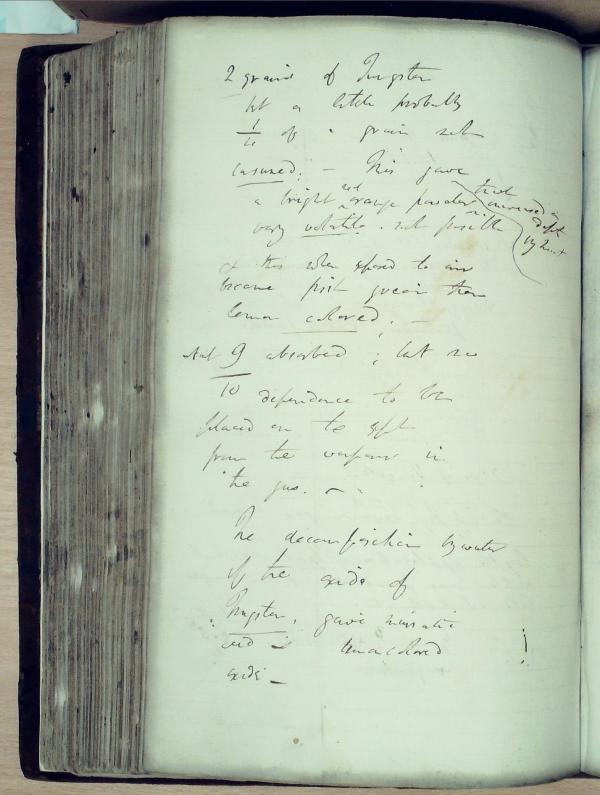 2 grains of Tungsten
but a little probably
1/4 of a grain not
consumed. — This gave
a bright red orange powder
that increased in depth by heat
very volatile. not possible
& this when exposed to air
became first green then
lemon colored. —
9/10 absorbed ; but no
dependence to be
placed on the expt
from the in
the gas. —
The decomposition by water
of the oxide of
Tungsten, gave muriatic
acid & lemon colored
oxide —